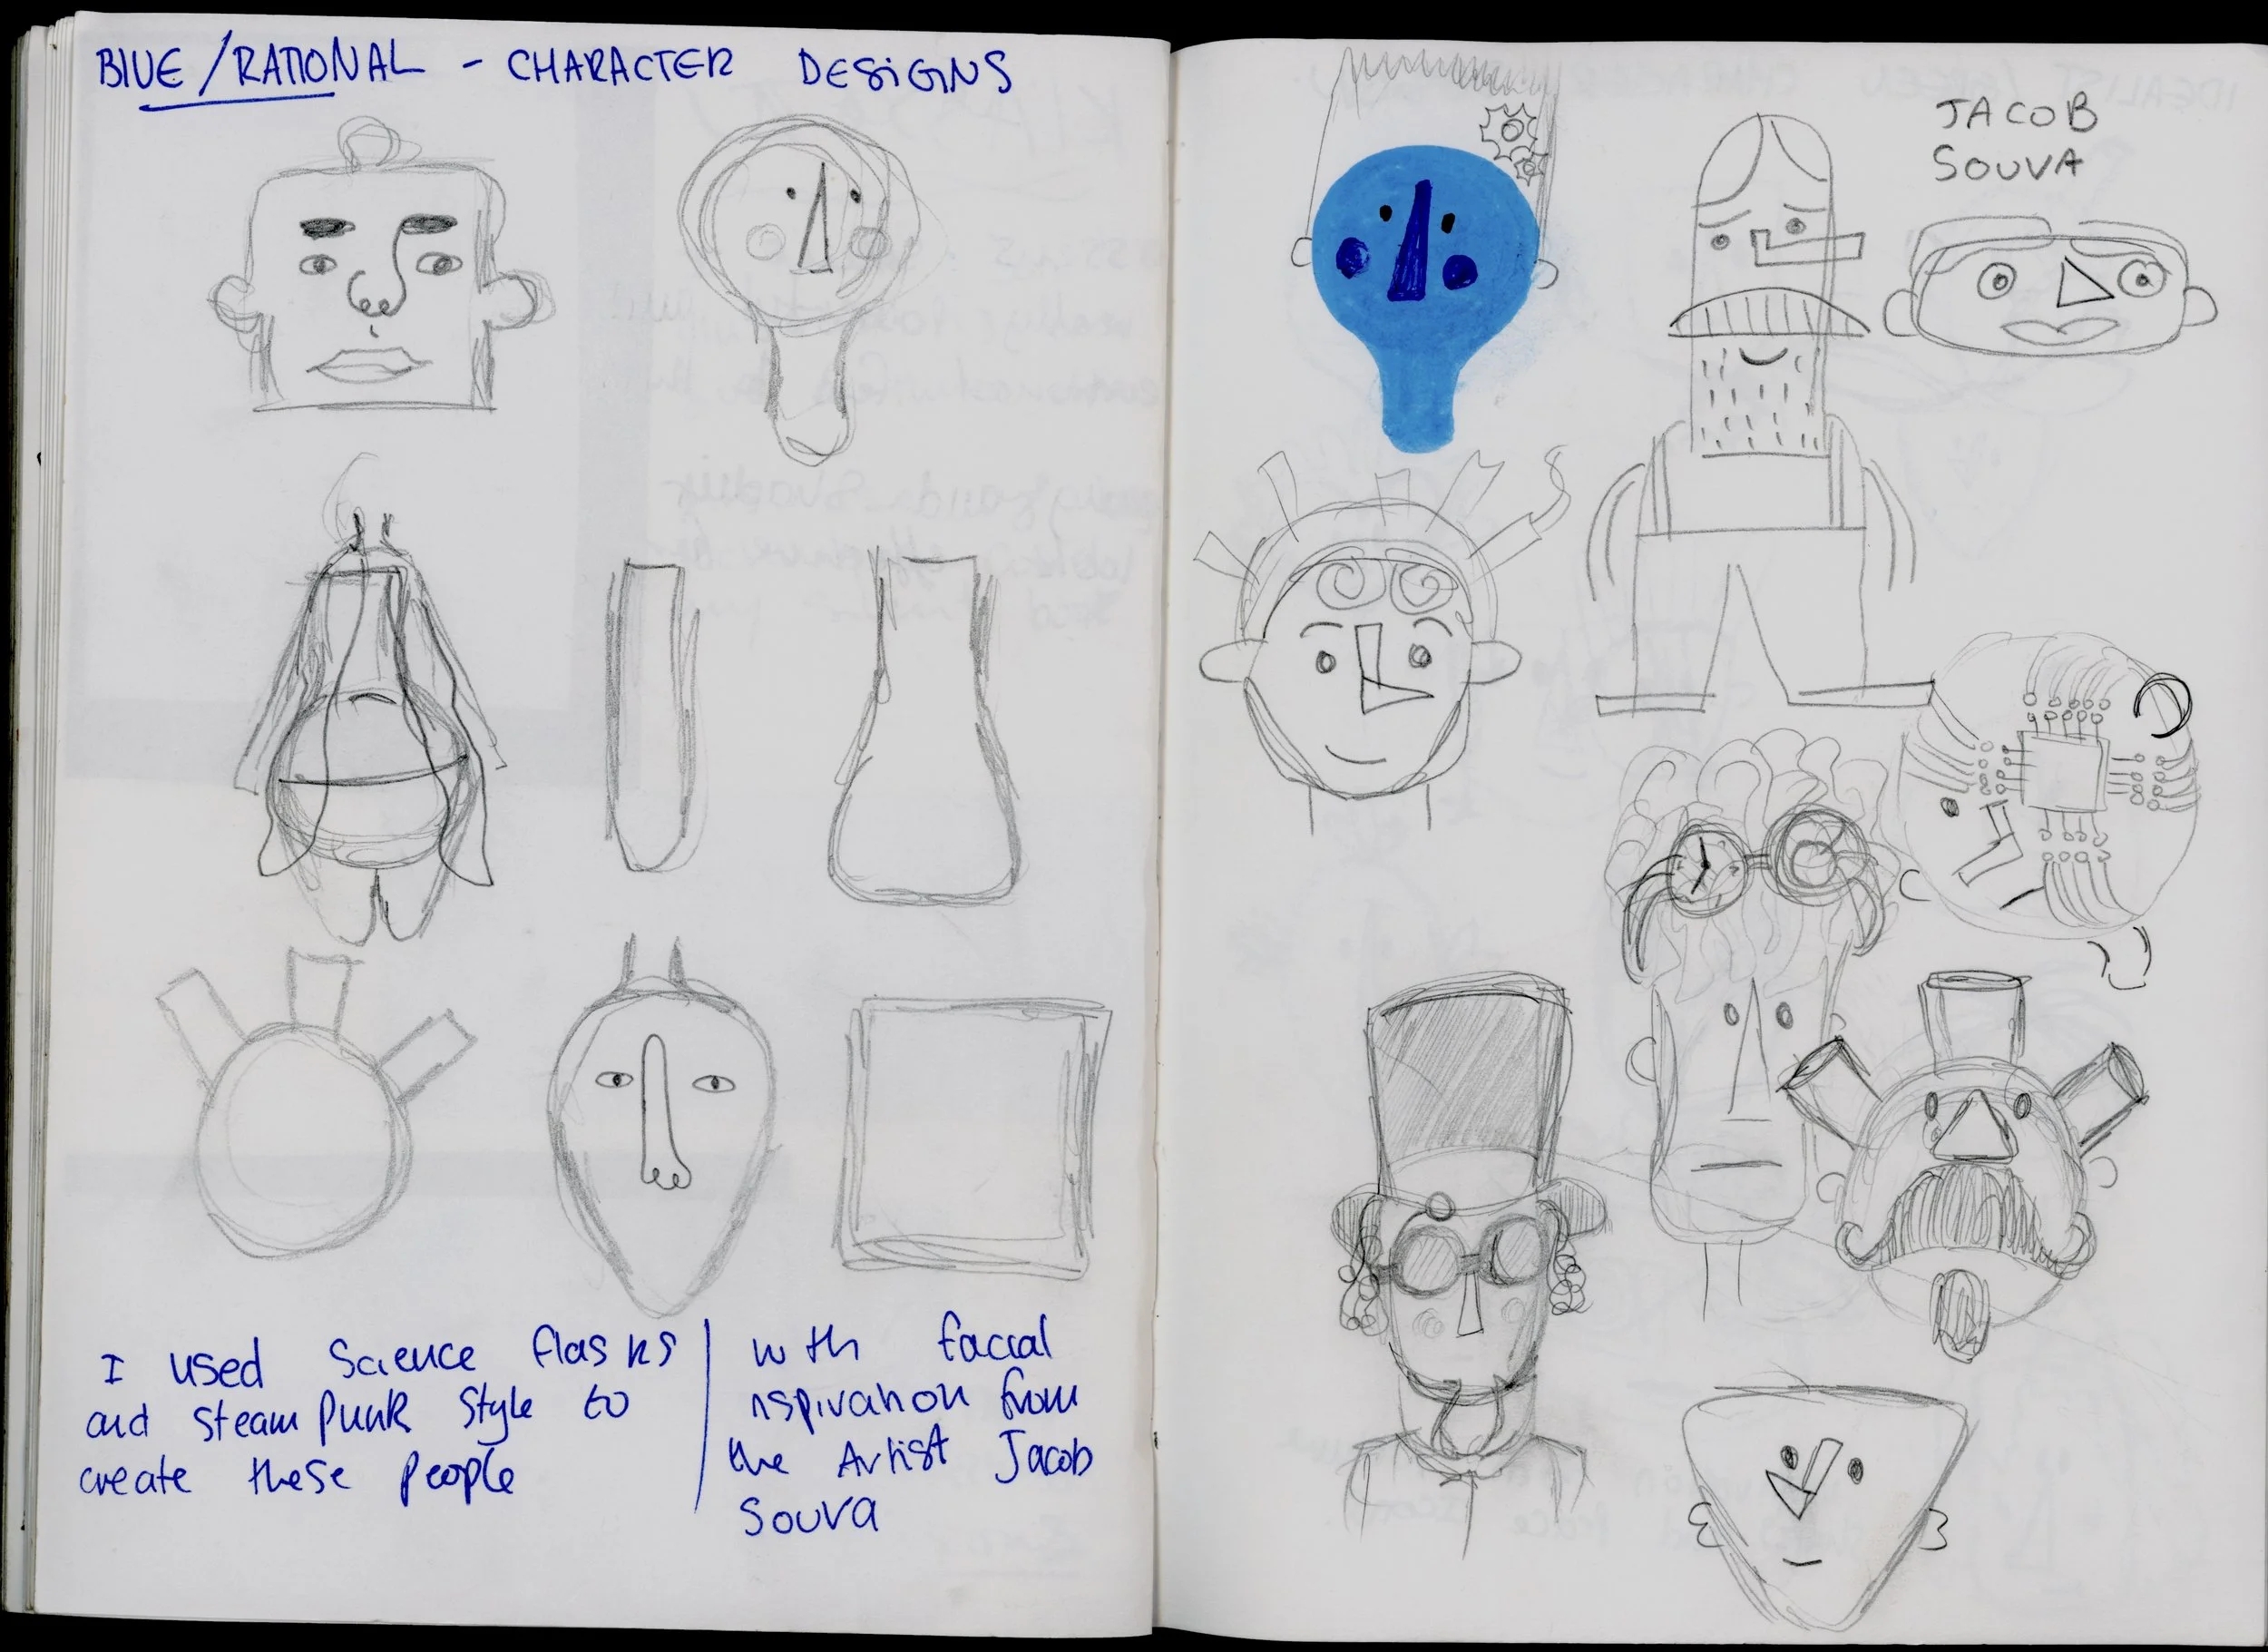 BLUE/RATIONAL - CHARACTER DESIGNS
I used Science flasks
and steam punk style to
create these people
with facial
nspiration from
the Artist Jacob
Souva
JACOB
SOUVA